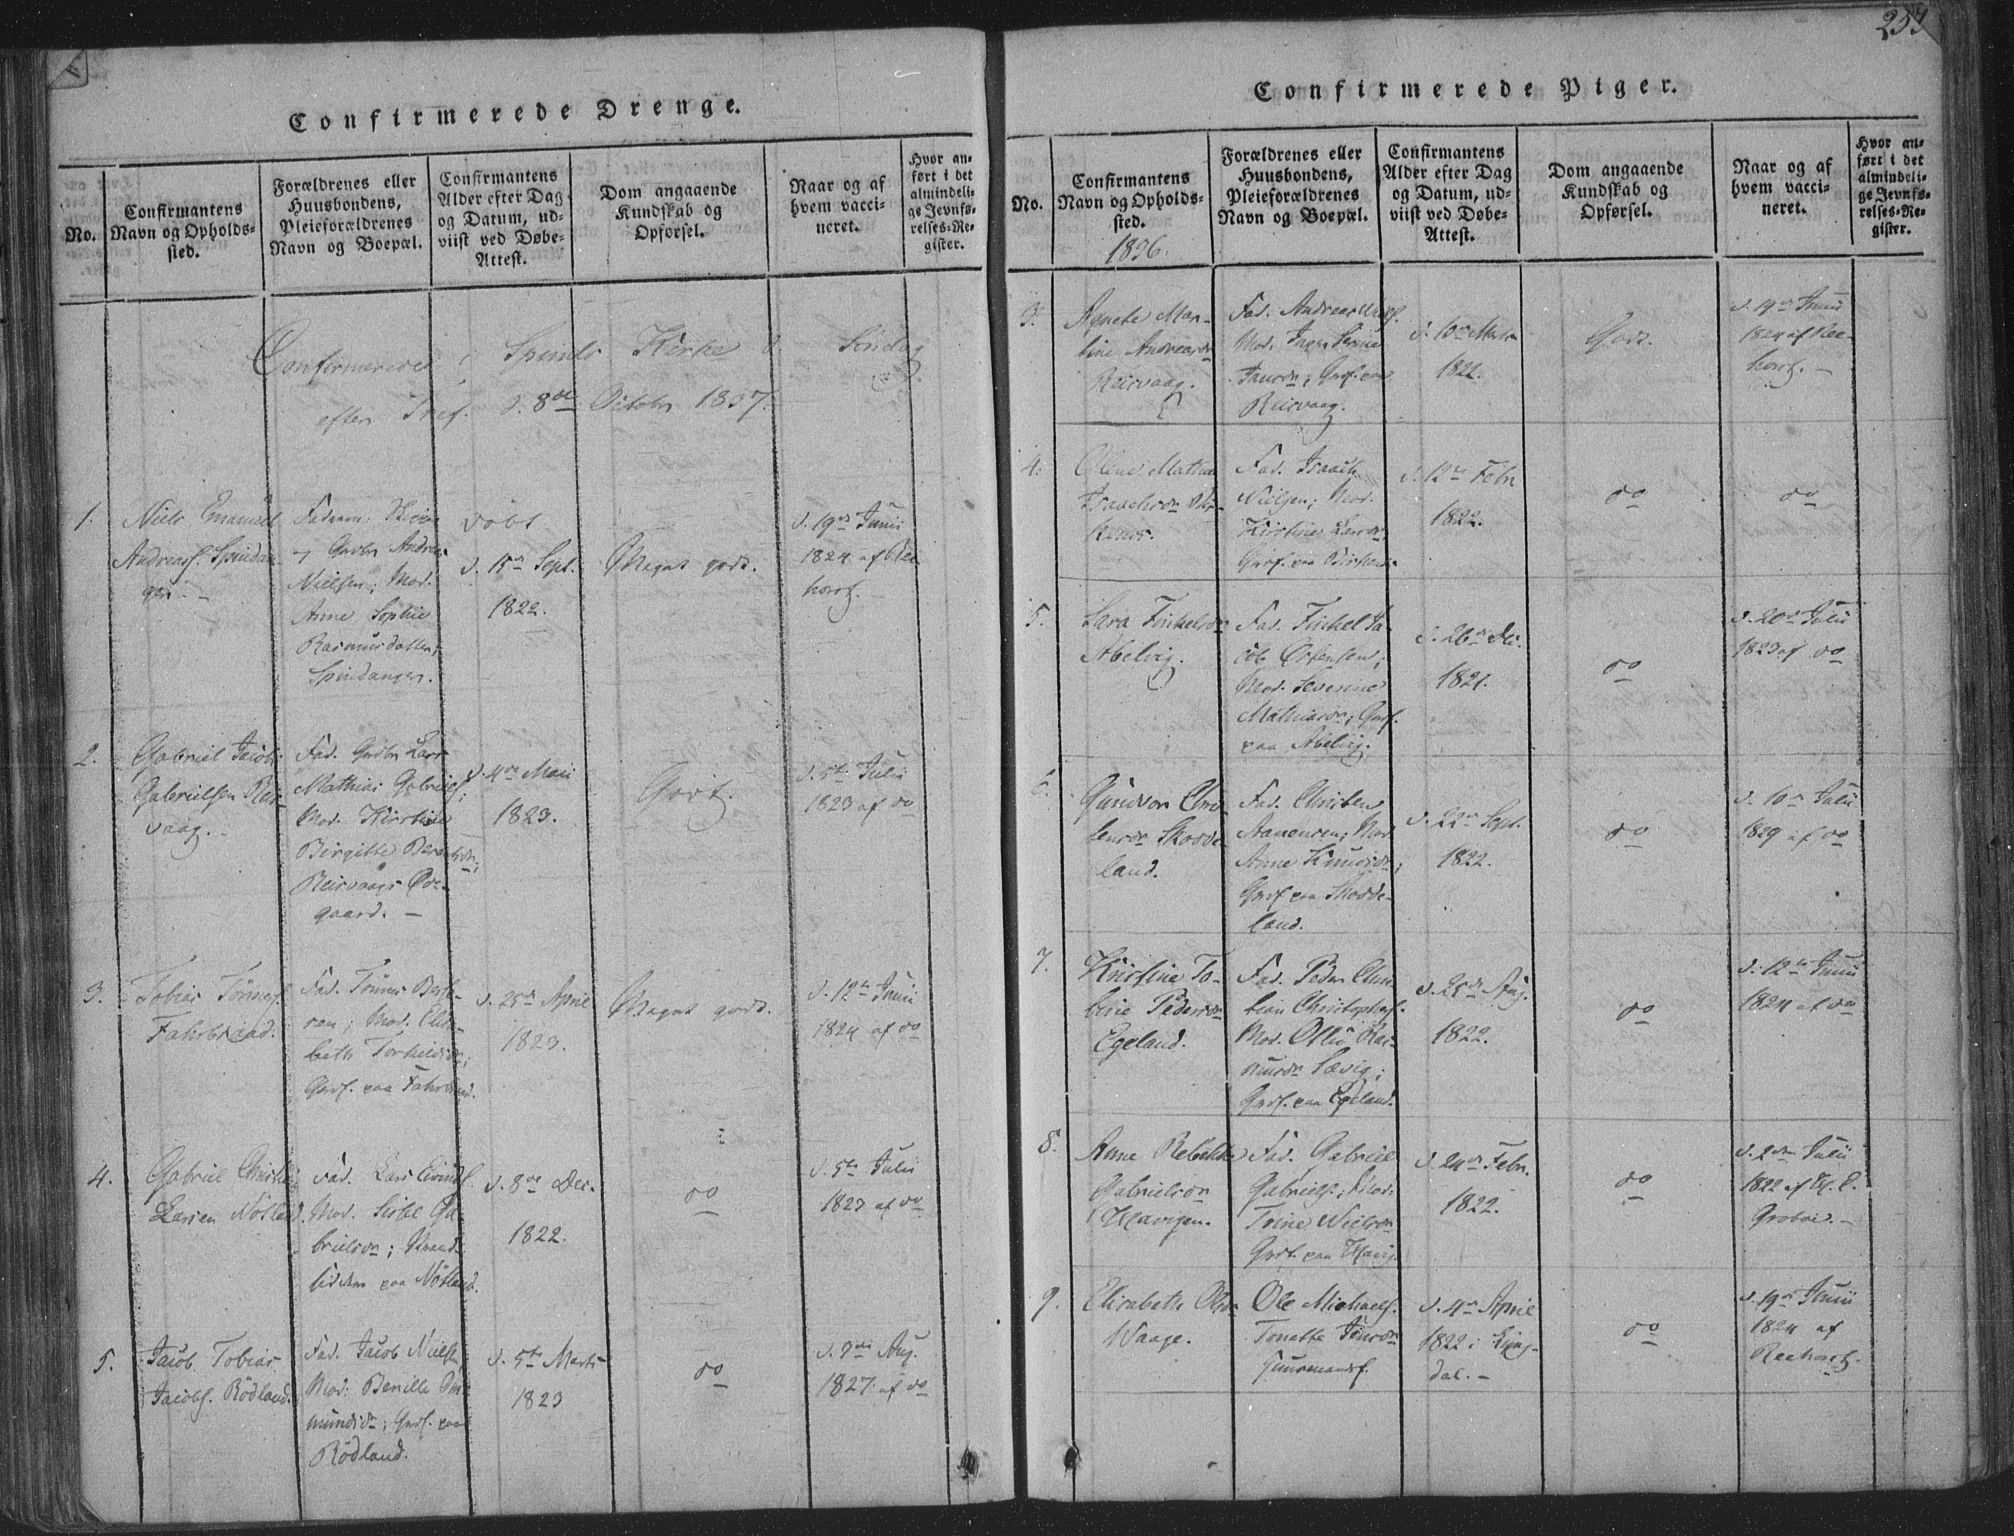 Confirmerede Drenge.
No.
Confirmantens
Navn og Opholds-
sted.
Forældrenes eller
Huusbondens,
Pleieforældrenes
Navn og Boepæl.
Confirmantens
Alder efter Dag
og Datum, ud-
viist ved Døbe-
Attest.
Dom angaaende
Kundskab og
Opførsel.
Naar og af
hvem vacci-
neret.
Hvor an-
ført i det
almindeli-
ge Jevnfø-
relses-Re-
gister.
Confirmerede i Spinds Kirke d. Søndag
efter Tref. d. 8de October 1837.
1.
Niels Emanuel
Andreasf. Spindan-
ger. -
Nielsen; Mod.
Anne Sophie
Rasmusdatter;
Spindanger.
døbt
d. 15de Sept.
1822.
Meget godt.
d. 19de Junii
1824 af Ree-
horst. -
2.
Gabriel Jacob
Gabrielsen Reis-
vaag. -
Fad. Grdbr Lars
Mathias Gabrielsf.;
Mod. Kirstine
Birgitte Berentsdr;
Reisvaags Øde-
gaard. -
d. 4de Maii
1823.
Godt.
d. 5te Julii
1823 af do
3.
Tobias Tønnesf.
Fahrbraad.
Fad. Tønnes Berf-
sen; Mod. Elis-
beth Torkildsdr;
Grdf. paa Fahrbraad.
d. 25de April
1823.
Meget godt.
d. 12te Junii
1824 af do
4.
Gabriel Christian
Larsen Nøtland.
Fad. Lars Eivindf.
Mod. Sidsel Ga-
brielsdr; Strand-
sidder paa Nøtland.
d. 8de Dec.
1822.
do
d. 5te Julii
1823 af do
5.
Jacob Tobias
Jacobf. Rødland.
Fad. Jacob Nielsen,
Mod: Benille Om-
mundsdr; Grdf. paa
Rødland.
d. 5te Marts
1823
do
Aug.
1827. af do
253
Confirmerede Piger.
No.
Confirmantens
Navn og Opholds-
sted.
1836.
Forældrenes eller
Huusbondens,
Pleieforældrenes
Navn og Boepæl.
Confirmantens
Alder efter Dag
og Datum, ud-
viist ved Døbe-
Attest.
Dom angaaende
Kundskab og
Opførsel.
Naar og af
hvem vacci-
neret.
Hvor an-
ført i det
almindeli-
ge Jevnfø-
relses-Re-
gister.
3.
Agnete Mar-
tine Andreasdr
Reisvaag.
Fad. Andreas
Mod. Inger Serine
Grdf. paa
Reisvaag.
d. 10de Marts
1822.
Godt.
d. 19de Junii
1824 af Ree-
horst. -
4.
Oline Mathea
Isaachsdr
Fad. Isaach
Nielsen; Mod.
Kirstine Larsdr
Grdf. paa
d. 12te Febr
1822.
do
do
5.
Sara Tinkelsdr
Abelvig.
Fad. Tinkel Ja-
cob Ørtensen;
Mod. Severine
Mathiasdr; Grdf.
paa Abelvig.
d. 26de Dec.
1821.
do
d. 20de Julii
1823 af do
6.
Gundvor Chri-
stensdr Skodde-
land.
Fad. Christen
Aanensen; Mod.
Anne Knudsdr;
Grdf. paa Skodde-
land.
d. 22de Sept.
1822.
do
d. 10de Julii
1829 af do
7.
Kirstine To-
bine Pedersdr
Egeland.
Fad. Peder Chri-
stian Christophf.
Mod. Ollu Ras-
musdr Sævig;
Grdf. paa Egeland.
d. 25de Aug.
1822.
do
d. 12te Junii
1824 af do
8.
Anne Rebekka
Gabrielsdr
Havigen.
Fad. Gabriel
Gabrielf; Mod.
Trine Nielsdr
Grdf. paa Havig.
d. 24de Febr.
1822.
do
Julii
1822 af
Groboe. -
9.
Elisabeth Olsdr
Waage.
Ole Michaelf.
Tonette Jensdr
Huusmandsf.
d. 4de April
1822 i
dal. -
do
d. 19de Junii
1824 af
Reehorst.